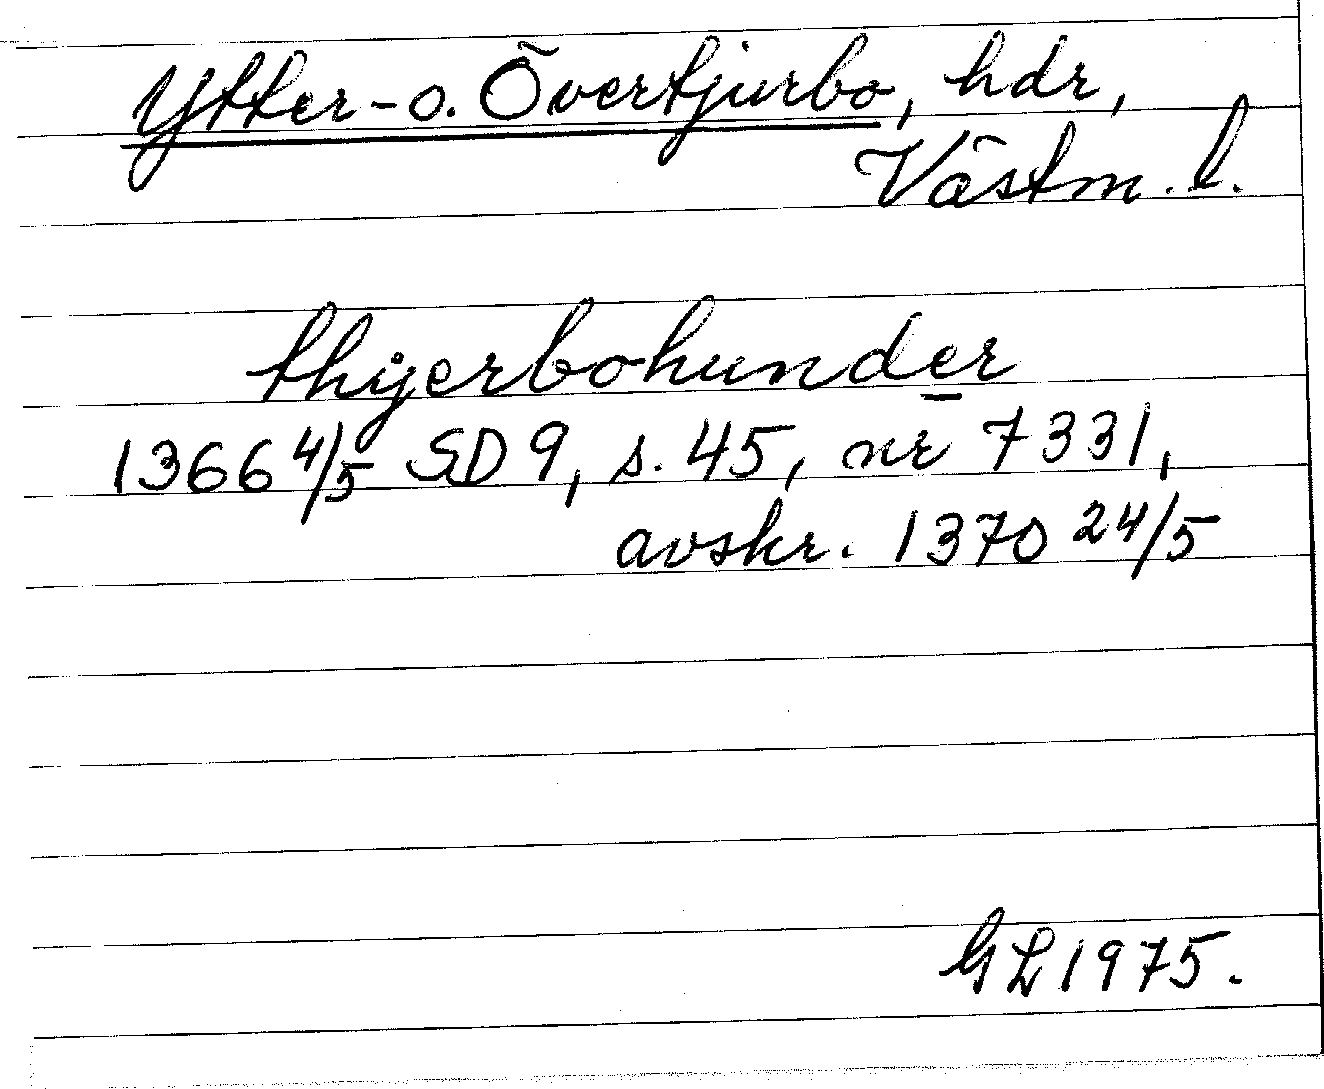 Ytter- o. Övertjurbo, hdr,
Västm. l.
thyerbohunder
1366 4/5 SD 9, s. 45, nr 7331,
avskr. 1370 24/5
GL 1975.